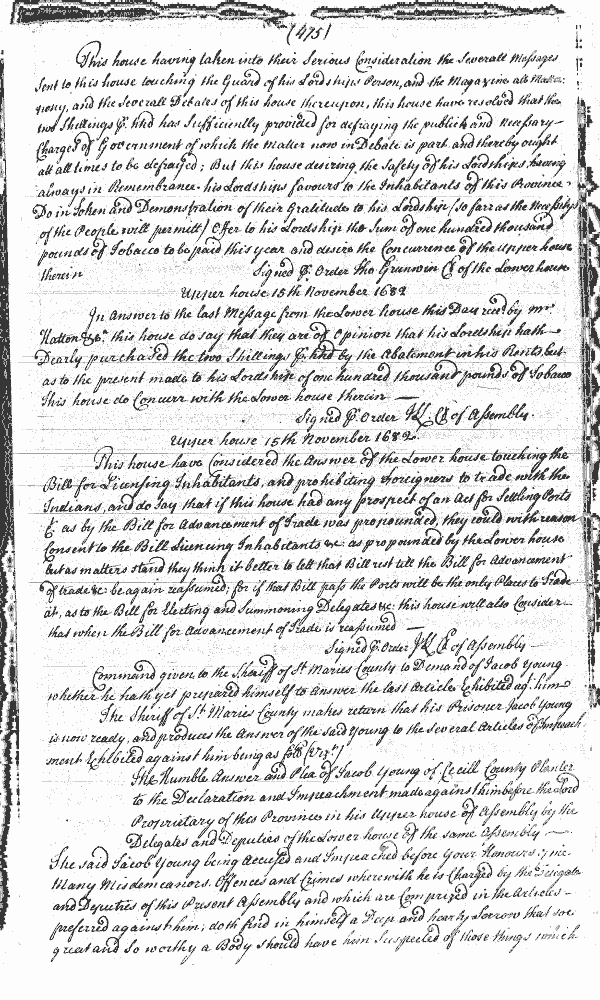 (475)
This house having taken into their Serious Consideration the Severall Messages
Sent to this house touching the Guard of his Lordships Person, and the Magazine att
and the Severall Debates of this house thereupon, this house have resolved that the
two Shillings ₽. hhd has Sufficiently provided for defraying the publick and Necessary
Charges of Government of which the Matter now in Debate is part and thereby ought
att all times to be defrayed; But this house desiring the Safety of his Lordships, having
always in Remembrance his Lordships favours to the Inhabitants of this Province
Do in Token and Demonstration of their Gratitude to his Lordship (so far as the Necessitys
of the People will permitt) Offer to his Lordship the Sum of one hundred thousand
pounds of Tobacco to be paid this year and desire the Concurrence of the upper house
therein Signed ₽. Order Tho Grunwin Cl of the Lower house
Upper house 15th November 1682
In Answer to the last Message from the Lower house this Day reced by Mr.
Hatton &ca. this house do say that they are of Opinion that his Lordship hath
Dearly purchased the two Shillings ₽. hhd by the Abatement in his Rents, but
as to the present made to his Lordship of one hundred thousand pounds of Tobacco
This house do Concurr with the Lower house therein —
Signed ₽. Order Cl of Assembly.
Upper house 15th November 1682
This house have Considered the Answer of the Lower house touching the
Bill for Licensing Inhabitants, and prohibiting Foreigners to trade with the
Indians, and do say that if this house had any prospect of an Act for Setling Ports
&c. as by the Bill for Advancement of Trade was propounded, they could with reason
Consent to the Bill Licencing Inhabitants &c. as propounded by the Lower house
but as matters stand they think it better to lett that Bill rest till the Bill for Advancement
of trade &c. be again reassumed; for if that Bill pass the Ports will be the only Places to Trade
att, as to the Bill for Electing and Summoning Delegates &c. this house will also Consider
that when the Bill for Advancement of Trade is reassumed —
Signed ₽. Order Cl of Assembly
Command given to the Sheriff of St. Maries County to Demand of Jacob Young
whether he hath yet prepared himself to Answer the last Articles Exhibited agt. him
The Sheriff of St. Maries County makes return that his Prisoner Jacob Young
is now ready, and produces the Answer of the said Young to the Several Articles of Impeach
ment Exhibited against him being as folls. (vizt.)
The Humble Answer and Plea of Jacob Young of Cecill County Planter
to the Declaration and Impeachment made against him before the Lord
Proprietary of this Province in his Upper house of Assembly by the
Delegates and Deputies of the Lower house of the same Assembly —
The said Jacob Young being Accused and Impeached before Your Honours
Many Misdemeanors. Offences and Crimes wherewith he is Charged by the Delegates
and Deputies of this Present Assembly and which are Comprized in the Articles
preferred against him; doth find in himself a Deep and hearty Sorrow that soe
great and so worthy a Body should have him Suspected of those things which